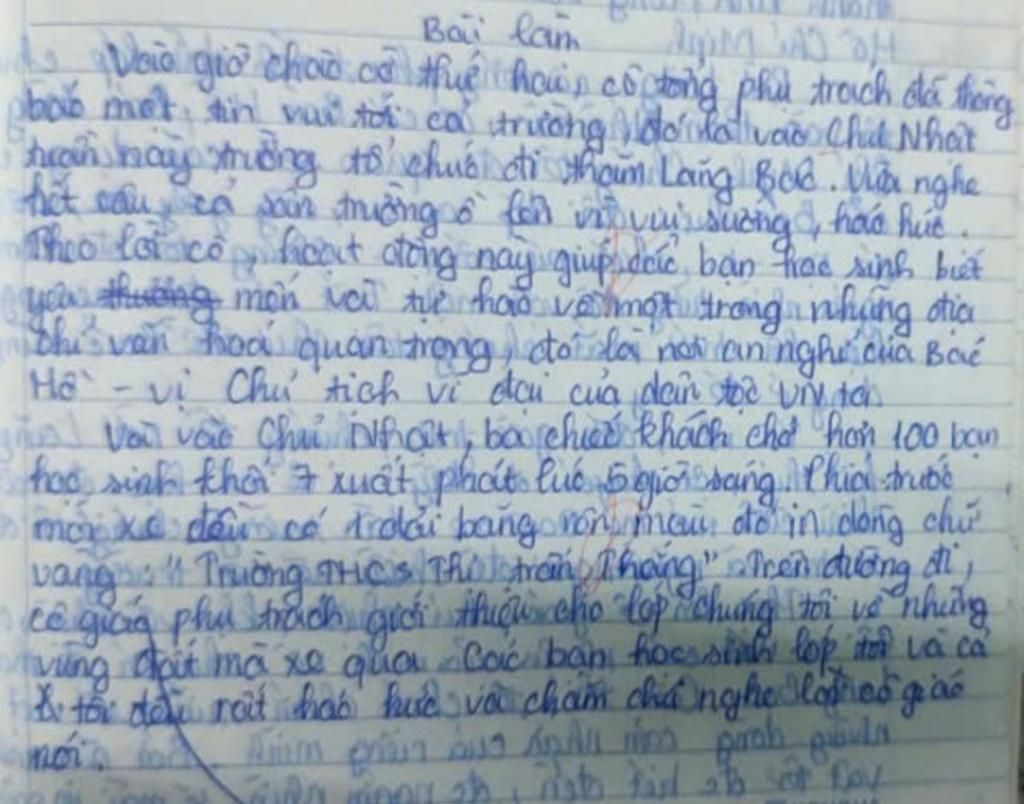 Bài làm
Vào giờ chào cờ thứ hai, cô tổng phụ trách đã thông
báo một tin vui tới cả trường, đó là vào Chủ Nhật
tuần này trường tổ chức đi thăm Lăng Bác. Vừa nghe
hết câu, cả sân trường ồ lên vì vui sướng, háo hức.
Theo lời cô, hoạt động này giúp các bạn học sinh biết
yêu mến và tự hào về một trong những địa
chỉ văn hoá quan trọng, đó là nơi an nghỉ của Bác
Hồ - vị Chủ tịch vĩ đại của dân tộc VN ta.
Vào Chủ Nhật, ba chiếc khách chở hơn 100 bạn
học sinh khối 7 xuất phát lúc 5 giờ sáng. Phía trước
mỗi xe đều có 1 dải băng rôn màu đỏ in dòng chữ
vàng: "Trường THCS Thị trấn Thắng". Trên đường đi,
cô giáo phụ trách giới thiệu cho lớp chúng tôi về những
vùng đất mà xe qua. Các bạn học sinh lớp tôi và cả
tôi đều rất háo hức và chăm chú nghe lời cô giáo
nói.